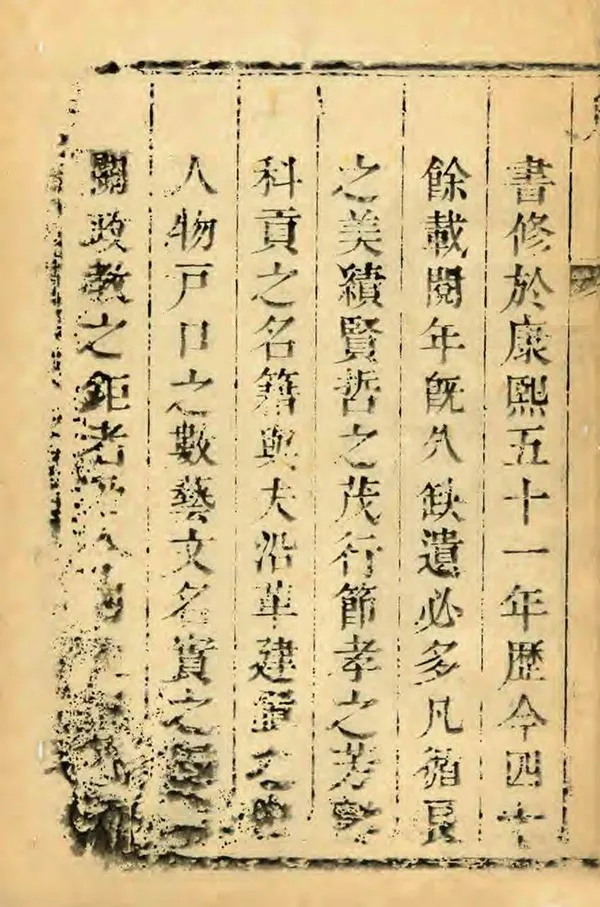 書修於康熙五十一年歷今四十
餘載閱年既久缺遺必多凡循良
之美績賢哲之茂行節孝之芳
科貢之名籍與夫沿革建置之
人物戶口之數藝文名實之
關政教之鉅者